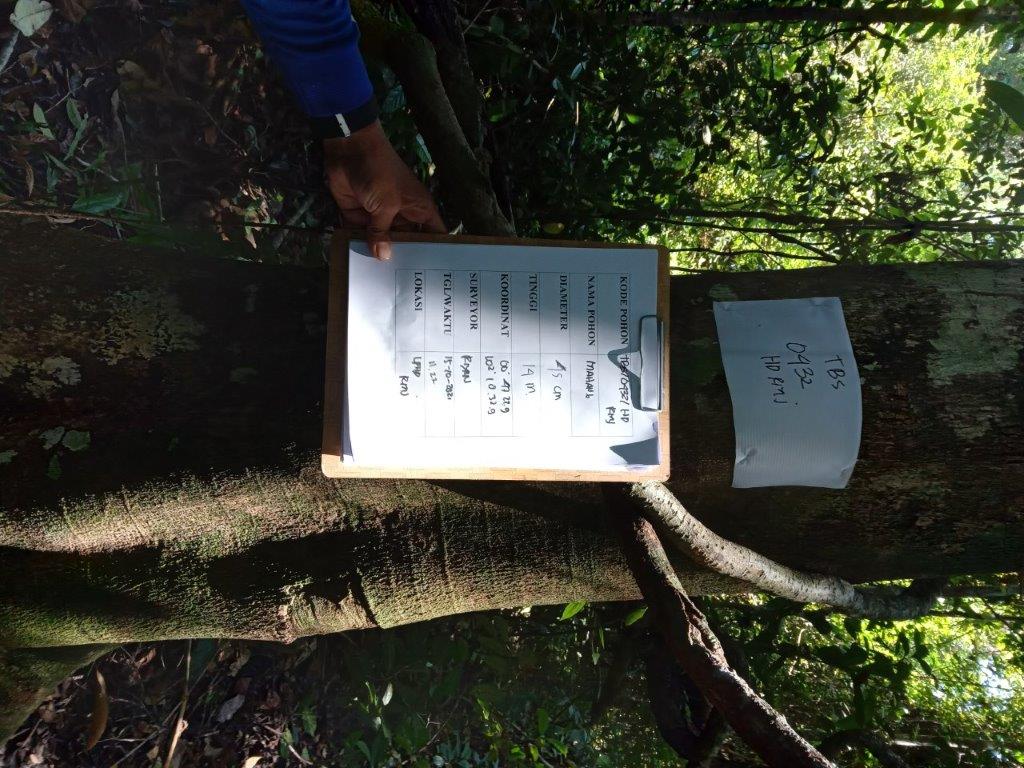 TBS
0432
HD RMJ
KODE POHON TBS/0432/ HD
RMJ
NAMA POHON MAHANG
DIAMETER 45 cm
TINGGI 14 m
KOORDINAT 00° 47 22.9
102° 10.32.9
SURVEYOR RIYAN
TGL/WAKTU 15-10-2021
11.22
LOKASI LPHD
RMJ